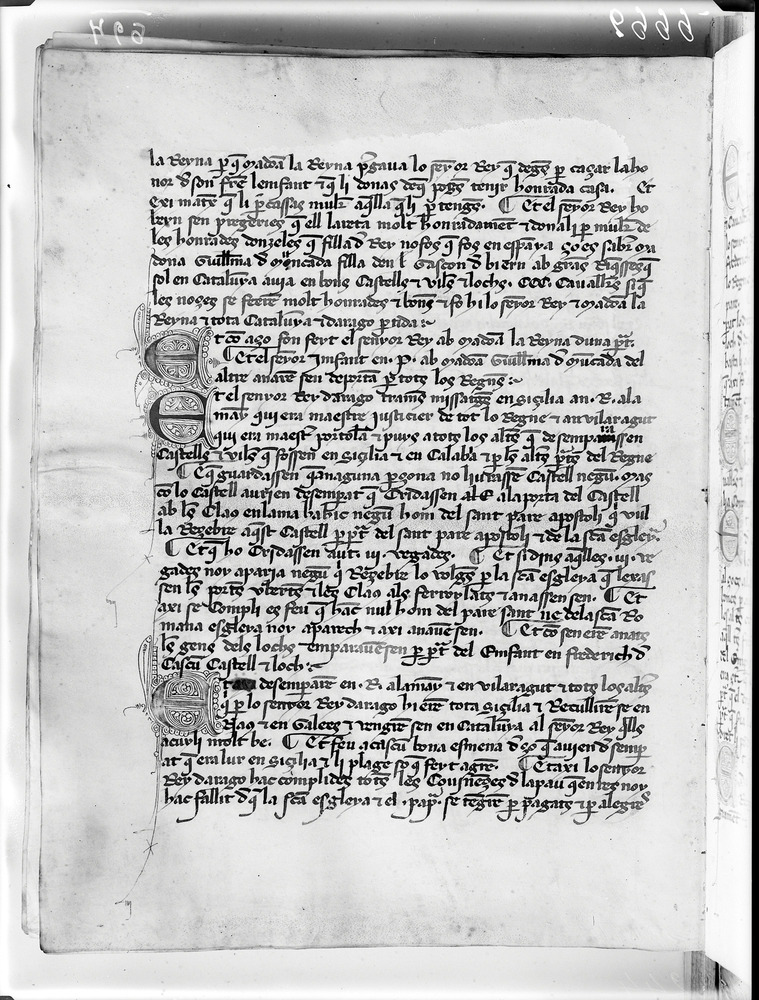 la Reyna ꝑ q̄ madōa la Reyna p̄gaua lo seȳor Rey q̄ degˢ ꝑ casar la ho
nor d̄ son frē lenfant ⁊ q̄ li donas deq̄ pogˢ tenir honrada casa. Et
axi mateˣ q̄ li p̄cassas mulr̄ aq̄lla q̄ li ꝑtengˢ. ¶ Et el seȳor Rey ho
q̄ ell la reta molt honradamēt ⁊ donali ꝑ mulr̄ de
les honrades donzeles q̄ filla d̄ Rey no fos q̄ fos en espāya so es saber ma
dona Guillma d̄ mōncada filla den .G. Gascon d̄ biern ab grās Riq̄ses q̄
sol en Cataluya auia en bons Castells ⁊ vilˢ ⁊ lochs. CCC. Cauallˢ si q̄
les noces se fēren molt honrades ⁊ bonˢ ⁊ fo hi lo seȳor Rey ⁊ madōa la
Reyna ⁊ tota Cataluȳa ⁊ darago ꝑtida:~
Et cō aço fon feyt el senyor Rey ab madōa la Reyna duna ꝑt.
¶ Et el seȳor Infant en .P. ab madōa Guillma d̄ mūcada del
altre anarē sen deportā ꝑ totˢ los Regnˢ:~
Et el senyor Rey darago trames missatgˢ en Sicilia an .R. ala
mān̄ qui era maestre justicier de tot lo Regne ⁊ an vilaragut
qui era maestr̄ portolā ⁊ puys a totˢ los altˢ q̄ desemparassen
Castells ⁊ vilˢ q̄ fossen en Sicilia ⁊ en Calabā ⁊ ꝑ lˢ altˢ ꝑtˢ del Regne
¶ E q̄ guardassen q̄ a naguna ꝑsona no liurassē Castell negū. mas
cō lo Castell aurien desemparat q̄ Cridassen al. a la porta del Castell
ab lˢ Claus en la ma ha hic negū hom del sant pare apostoli q̄ vull
la Reebre aq̄st Castell ꝑ ꝑt del sant pare apostoli ⁊ de la sctā esgleȳ
¶ Et q̄ ho Cridassen aut .iii. vegades. ¶ Et si dins aq̄lles .iii. ve
gades noy aparia negū q̄ Reebre lo volgˢ ꝑ la sctā esgleya q̄ lexas
sen lˢ portˢ vbertˢ ⁊ lˢ Claus als ferrollatˢ ⁊ anassen sen. ¶ Et
axi se Compli es feu q̄ hāc nul hom del pare sant ne de la sctā Ro
mana esgleya noy aparech ⁊ axi anauē sen. ¶ Et cō sen erē anatˢ
lˢ gens dels lochs emparauē sen ꝑ ꝑt del Enfant en frederich d̄
Cascū Castell ⁊ loch:~
Et desemparē en .R. alamān̄ ⁊ en vilaragut ⁊ totˢ los altˢ
q̄ ꝑ lo senyor Rey darago hi erē tota Sicilia ⁊ Recullirē se en
Naus ⁊ en Galees ⁊ vengrē sen en Cataluya al seȳor Rey Ills
aculli molt be. ¶ Et feu a cascū bona esmena d̄ ço q̄ auien d̄semp
at q̄ era lur en Sicilia ⁊ li plagē ço q̄ feyt agrē. ¶ Et axi lo senyor
Rey darago hac complides totˢ les Couinēces d̄ la pau q̄ en res noy
hac fallit d̄ q̄ la sctā esgleya ⁊ el .papa. se tēgrē ꝑ pagatˢ ⁊ ꝑ alegrē